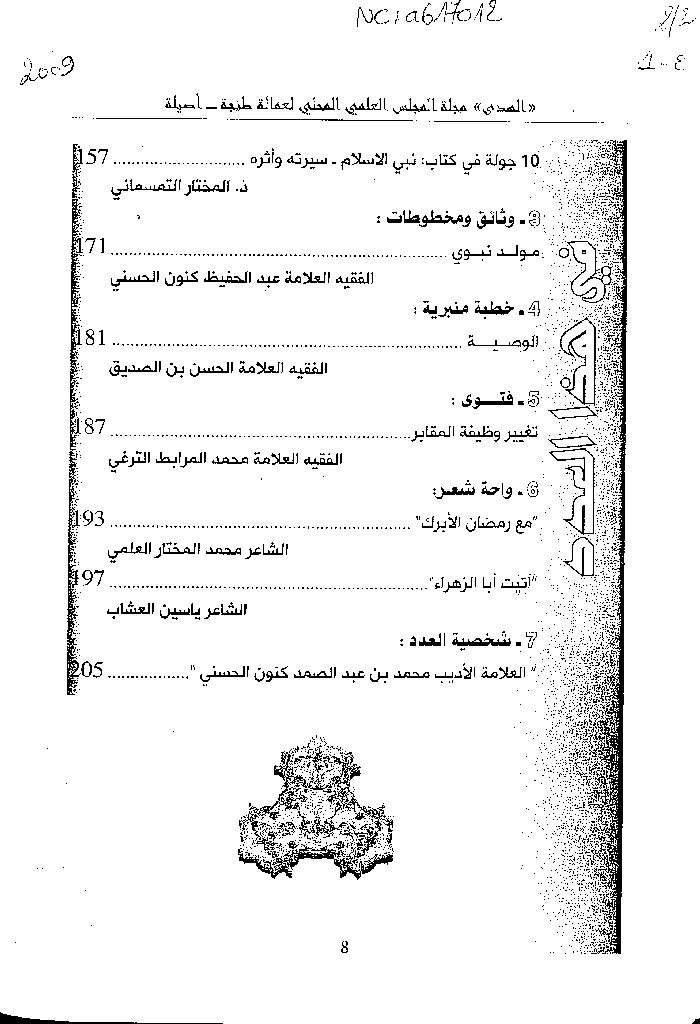 NC:a617012
2/2
2009
1-8
«الهدى» مجلة المجلس العلمي المحلي لعمالة طنجة ـ أصيلة
في هذا العدد
10 جولة في كتاب: نبي الاسلام ـ سيرته وأثره ............................ 157
د. المختار التمسماني
3 ـ وثائق ومخطوطات :
مولـد نبـوي ............................ 171
الفقيه العلامة عبد الحفيظ كنون الحسني
4 ـ خطبة منبرية :
الوصيـــة ............................ 181
الفقيه العلامة الحسن بن الصديق
5 ـ فتـــوى :
تغيير وظيفة المقابر ............................ 187
الفقيه العلامة محمد المرابط الترغي
6 ـ واحة شعـر:
"مع رمضان الأبرك" ............................ 193
الشاعر محمد المختار العلمي
"أتيت أبا الزهراء" ............................ 197
الشاعر ياسين العشاب
7 ـ شخصية العدد :
" العلامة الأديب محمد بن عبد الصمد كنون الحسني " ................. 205
8